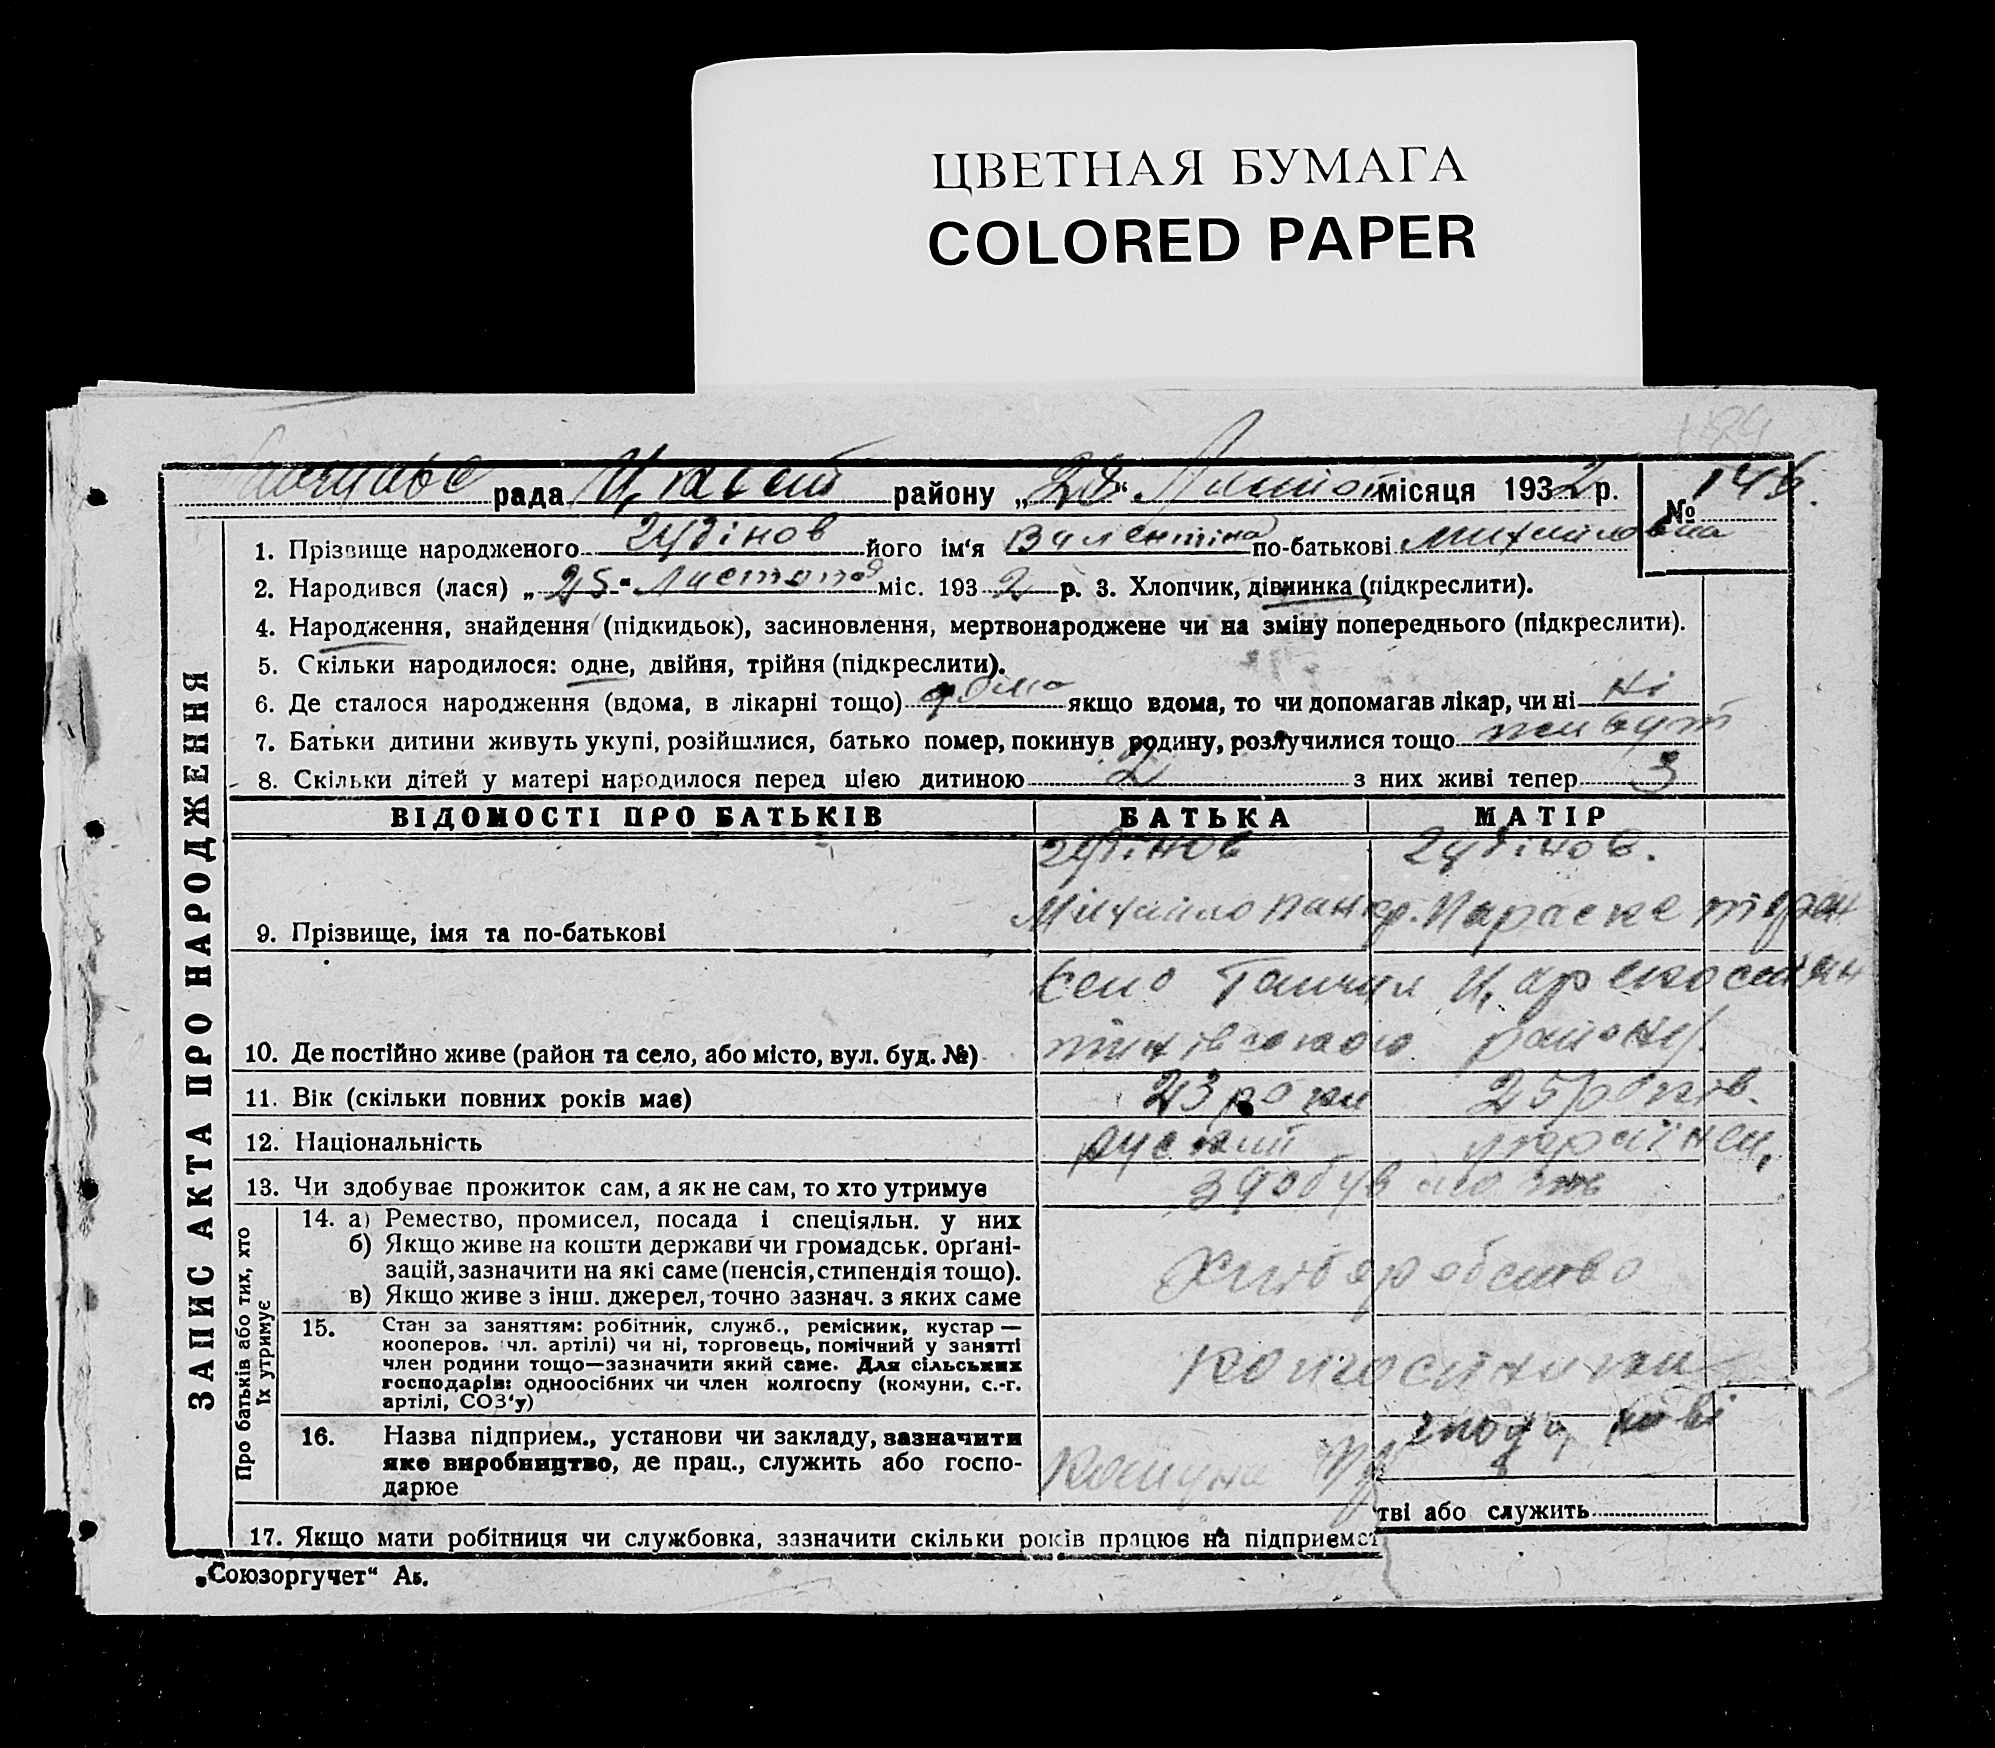 ЦВЕТНАЯ БУМАГА
COLORED PAPER
рада районy „28“ місяця 1932 р. № 146.
1. Прізвище народженого Гудінов його ім'я Валентіна по-батькові Михайловна
2. Народився (лася) „25“ Листопад міс. 1932 р. 3. Хлопчик, дівчинка (підкреслити).
4. Народження, знайдення (підкидьок), засиновлення, мертвонароджене чи на зміну попереднього (підкреслити).
5. Скільки народилося: одне, двійня, трійня (підкреслити).
6. Де сталося народження (вдома, в лікарні тощо) дома якщо вдома, то чи допомагав лікар, чи ні ні
7. Батьки дитини живуть укупі, розійшлися, батько помер, покинув родину, розлучилися тощо живут
8. Скільки дітей у матері народилося перед цією дитиною 2 з них живі тепер 3
ЗАПИС АКТА ПРО НАРОДЖЕННЯ
ВІДОМОСТІ ПРО БАТЬКІВ БАТЬКА МАТІР
Гудінов Гудінов.
9. Прізвище, імя та по-батькові Михайло Панкр. Параске
село
10. Де постійно живе (район та село, або місто, вул. буд. №) району.
11. Вік (скільки повних років має) 23 роки 25 років.
12. Національність руский українец,
13. Чи здобуває прожиток сам, а як не сам, то хто утримує
Про батьків або тих, хто
їх утримує
14. а) Ремество, промисел, посада і спеціяльн. у них
б) Якщо живе на кошти держави чи громадськ. орґані-
зацій, зазначити на які саме (пенсія, стипендія тощо).
в) Якщо живе з інш. джерел, точно зазнач. з яких саме
Хліборобство
15. Стан за заняттям: робітник, служб., ремісник, кустар —
кооперов. чл. артілі) чи ні, торговець, помічний у занятті
член родини тощо—зазначити який саме. Для сільських
господарів: одноосібних чи член колгоспу (комуни, с.-г.
артілі, СОЗ'у)
колгоспники
16. Назва підприєм., установи чи закладу, зазначити
яке виробництво, де прац., служить або госпо-
дарює
Комуна
17. Якщо мати робітниця чи службовка, зазначити скільки років працює на підприємс
тві або служить
„Союзоргучет“ Аб.